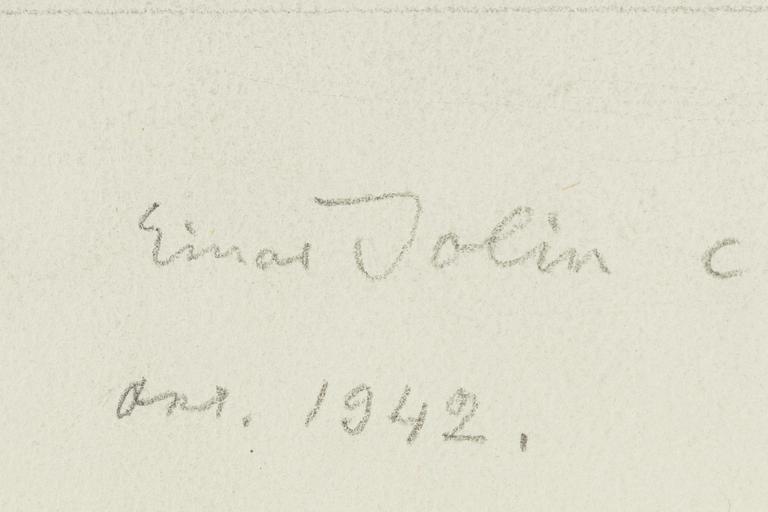 Einar Jolin c
1942.